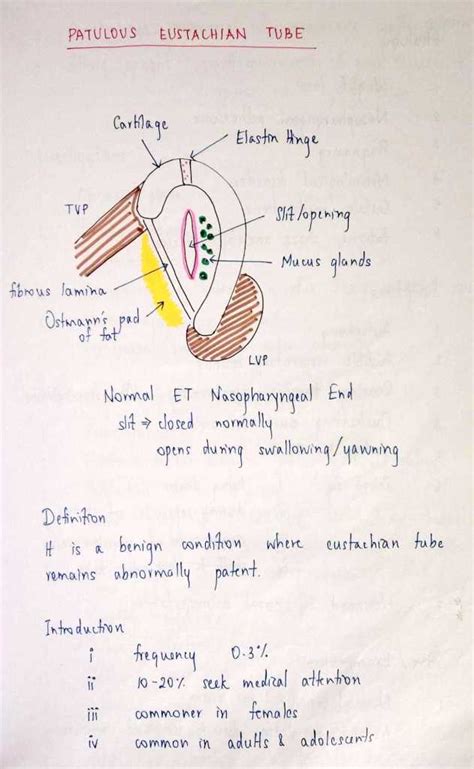 PATULOUS EUSTACHIAN TUBE
Cartilage
Elastin Hinge
TVP
Slit/opening
Mucus glands
fibrous lamina
Ostmann's pad
of fat
LVP
Normal ET Nasopharyngeal End
slit ⇒ closed normally
opens during swallowing/yawning
Definition
It is a benign condition where eustachian tube
remains abnormally patent.
Introduction
i frequency 0.3%
ii 10-20% seek medical attention
iii commoner in females
iv common in adults & adolescents